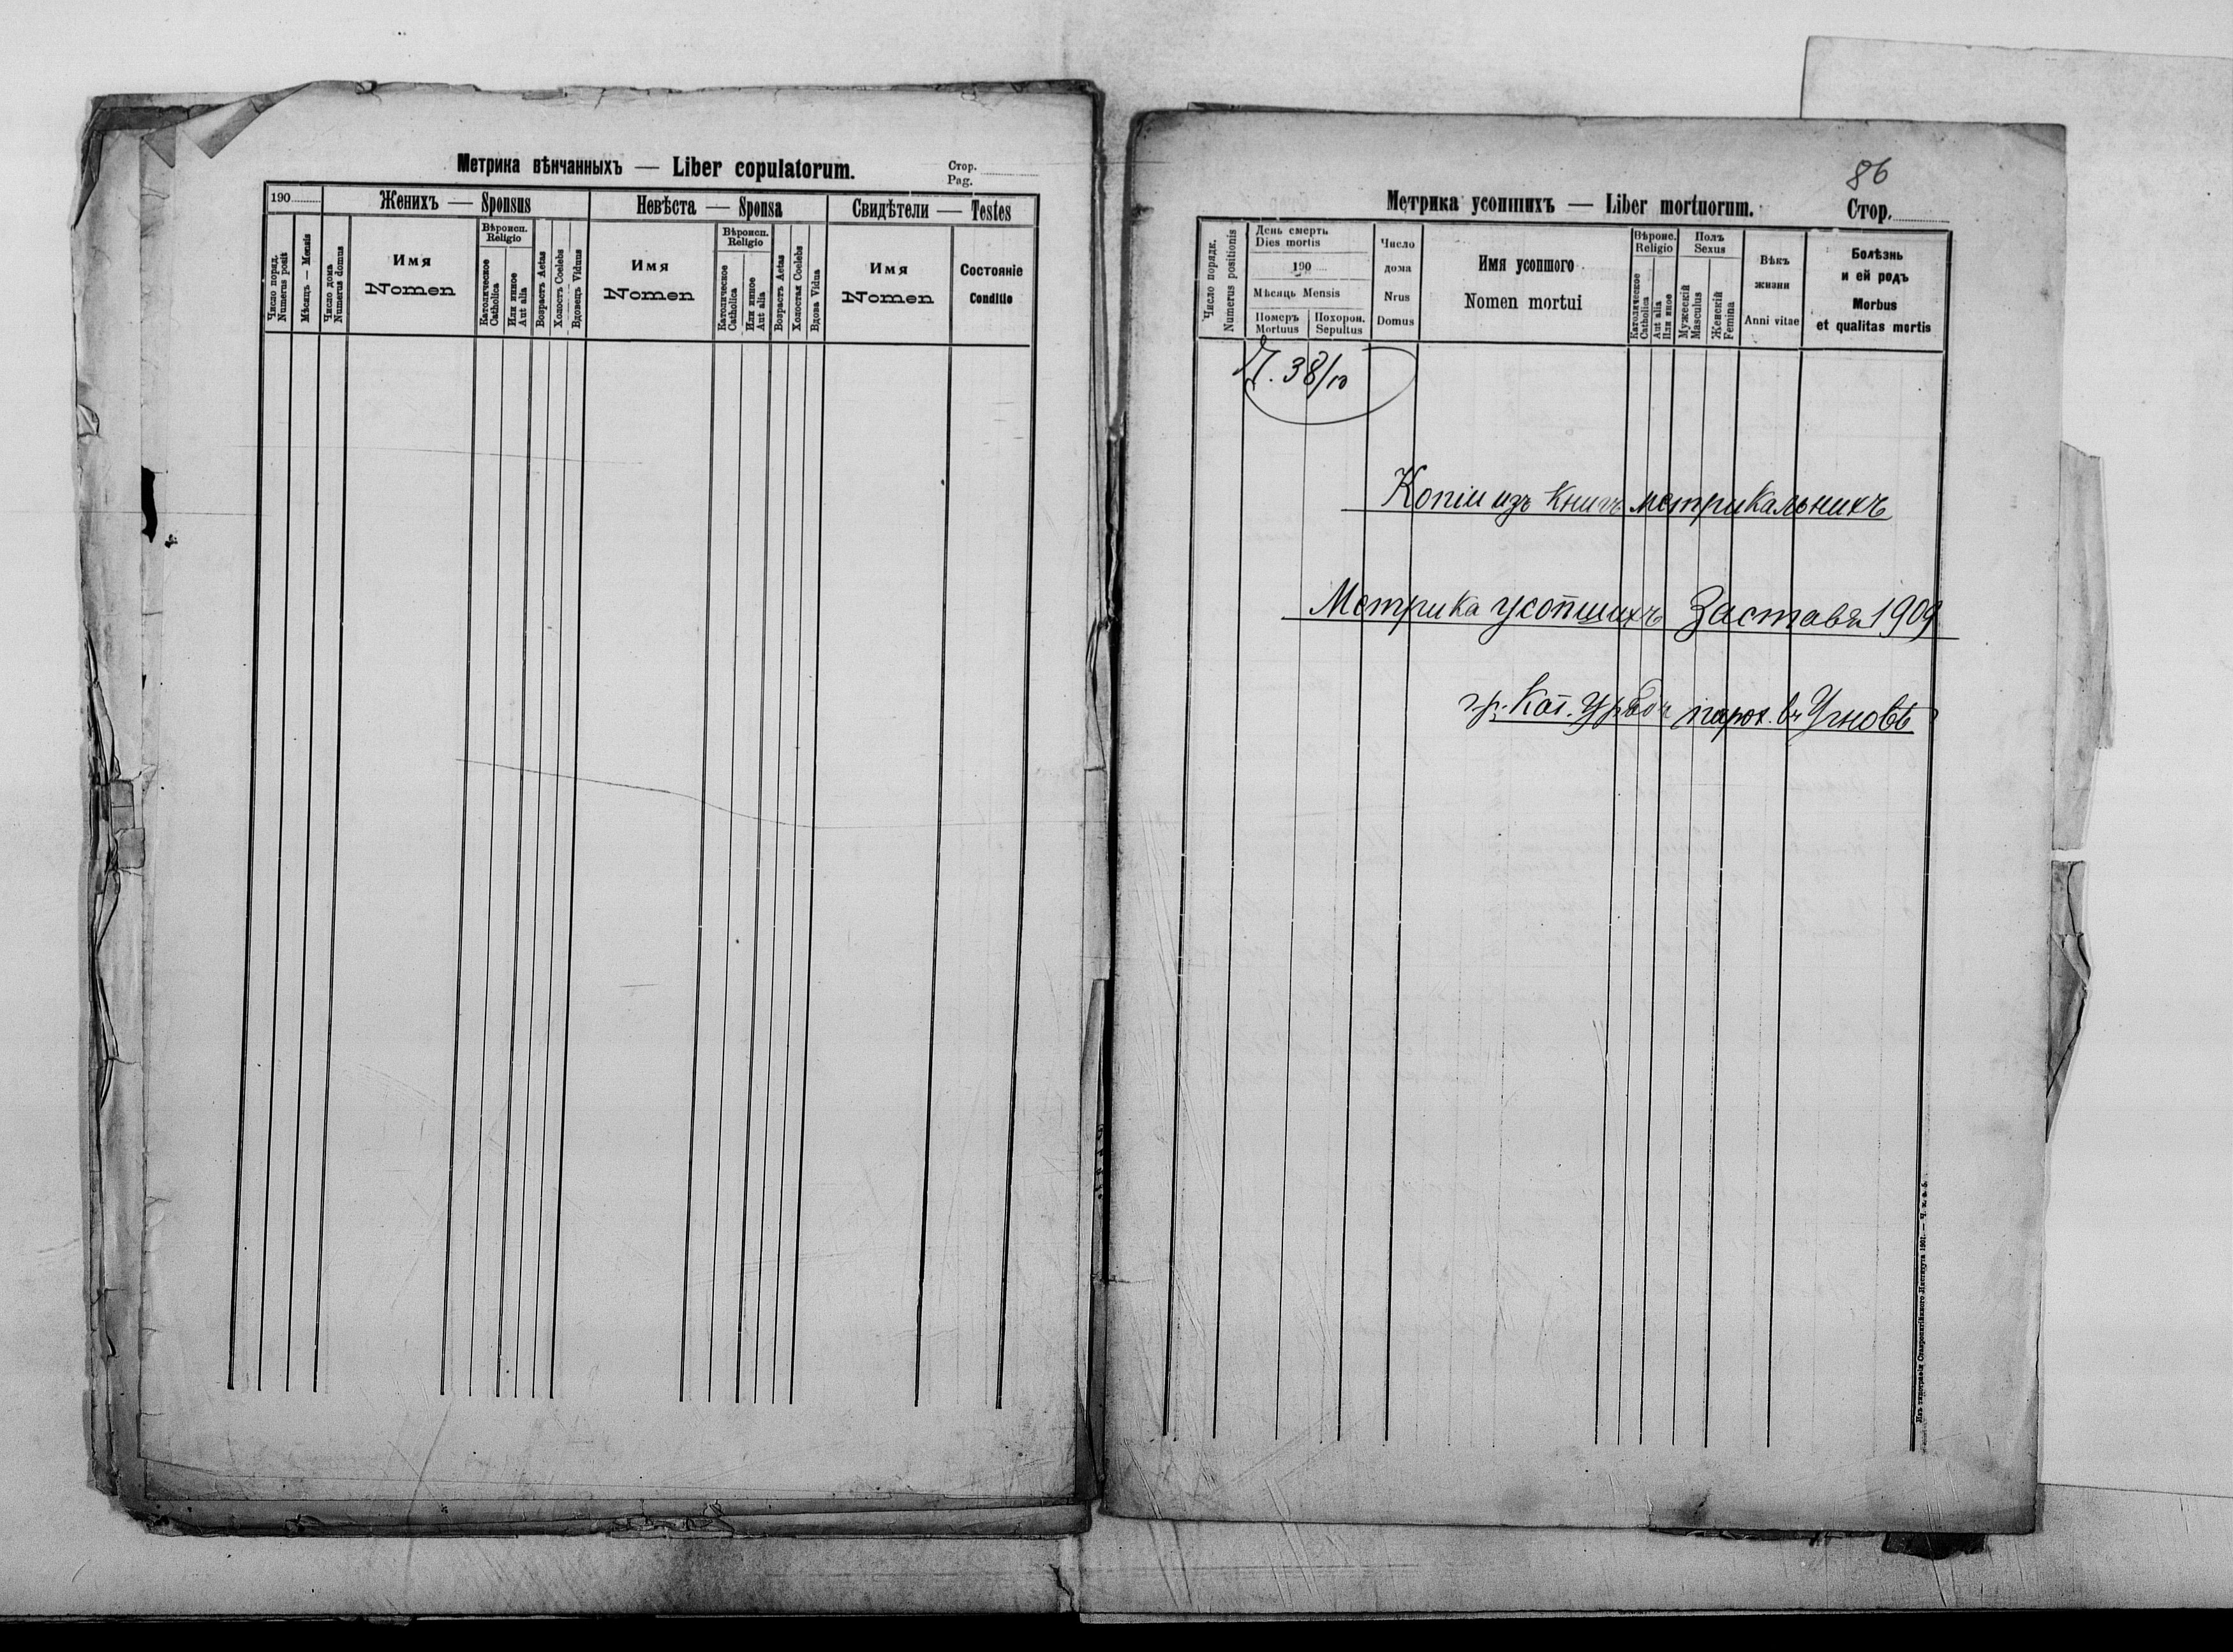 Метрика вѣнчанныхъ — Liber copulatorum.
Стор.
Pag.
190
Женихъ — Sponsus
Невѣста — Sponsa
Свидѣтели — Testes
Число поряд.
Numerus posit
Мѣсяць — Mensis
Число дома
Numerus domus
Имя
Nomen
Вѣроисп.
Religio
Католическое
Catholica
Или инное
Aut alia
Возрастъ Aetas
Холостъ Coelebs
Вдовецъ Viduus
Имя
Nomen
Вѣроисп.
Religio
Католическое
Catholica
Или инное
Aut alia
Возрастъ Aetas
Холостая Coelebs
Вдова Vidua
Имя
Nomen
Состояніе
Conditio
86
Метрика усопшихъ — Liber mortuorum.
Стор.
Число порядк.
Numerus positionis
День смерть
Dies mortis
190
Мѣсяць Mensis
Померъ
Mortuus
Похорон.
Sepultus
Число
дома
Nrus
Domus
Имя усопшого
Nomen mortui
Вѣроис.
Religio
Католическое
Catholica
Aut alia
Или иное
Полъ
Sexus
Мужескій
Masculus
Женскій
Femina
Вѣкъ
жизни
Anni vitae
Болѣзнь
и ей родъ
Morbus
et qualitas mortis
Ч. 38/10
Копіи изъ книгъ метрикальнихъ
Метрика усопшихъ Заставя 1909
гр. кат. Урядъ парох. въ Угновѣ
Изъ типографіи Ставропигійского Института 1901. — Ч. к. а. 5.